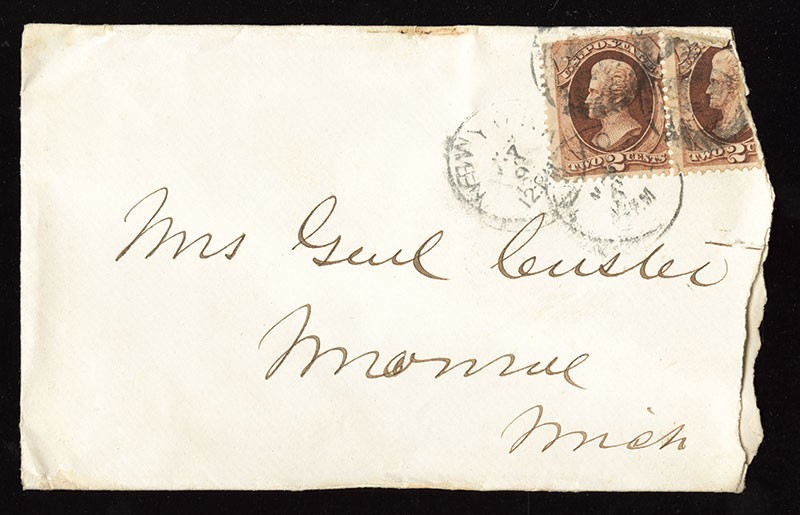 U.S. POSTAGE
TWO 2 CENTS
TWO 2 C
NEW Y
12
Mrs Genl Custer
Monroe
Mich